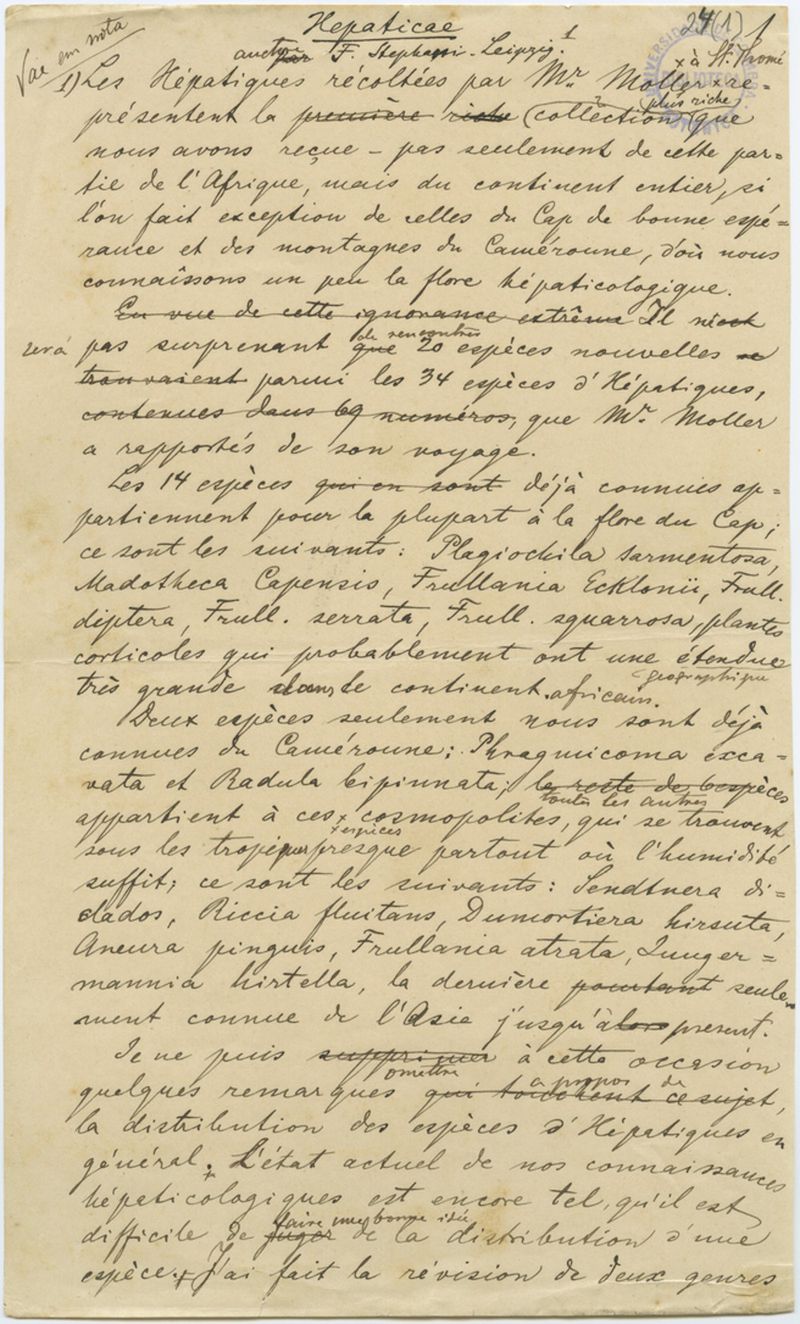 Hepaticae
24(1) 1
Vae em nota
auctore par F. Stephani. Leipzig. 1
x à St. Thomé
1) Les Hépatiques récoltées par Mr. Moller x re=
plus riche
présentent la première riche collection que
nous avons reçue – pas seulement de cette par=
tie de l'Afrique, mais du continent entier, si
l'on fait exception de celles du Cap de bonne espé=
rance et des montagnes du Caméroune, d'où nous
connaîssons un peu la flore hépaticologique.
En vue de cette ignorance extrême Il n'est
de rencontrer
será pas surprenant que 20 espèces nouvelles se
trouvaient parmi les 34 espèces d'Hépatiques,
contenues dans 69 numéros, que Mr. Moller
a rapportés de son voyage.
Les 14 espèces qui en sont déjà connues ap=
partiennent pour la plupart à la flore du Cap;
ce sont les suivants: Plagiochila sarmentosa,
Madotheca Capensis, Frullania Ecklonii, Frull.
diptera, Frull. serrata, Frull. squarrosa, plantes
corticoles qui probablement ont une étendue
geographique
très grande dans le continent africain.
Deux espèces seulement nous sont déjà
connues du Caméroune: Phragmicoma exca=
vata et Radula bipinnata; le reste de 6 espèces
toutes les autres
appartient à ces x cosmopolites, qui se trouvent
x espèces
sous les tropiques presque partout où l'humidité
suffit; ce sont les suivants: Sendtnera di=
clados, Riccia fluitans, Dumortiera hirsuta,
Aneura pinguis, Frullania atrata, Junger=
mannia hirtella, la dernière pourtant seule=
ment connue de l'Asie jusqu'à present.
Je ne puis supprimer à cette occasion
omettre
a propos de
quelques remarques qui touchent ce sujet,
la distribution des espèces d'Hépatiques en
général. L'état actuel de nos connaissances
hépaticologiques est encore tel, qu'il est
faire une bonne idée
difficile de juger de la distribution d'une
espèce. J'ai fait la révision de deux genres